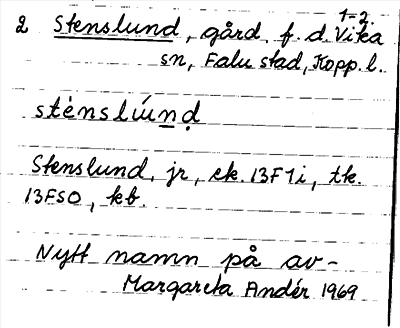 1-2.
2 Stenslund, gård, f. d. Vika
sn, Falu stad, Kopp. l.
stènslúnḍ
Stenslund, jr, ek. 13F7i, tk.
13FSO, kb.
Nytt namn på av-
Margareta Andér 1969